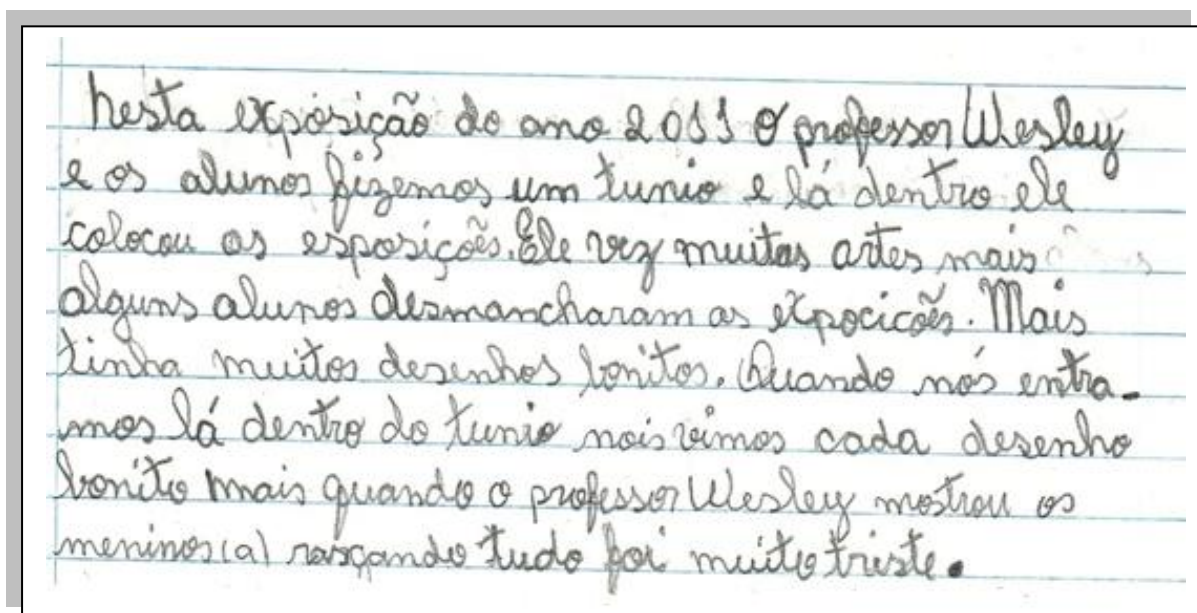 Nesta exposição do ano 2011 O professor Wesley
e os alunos fizemos um tunio e lá dentro ele
colocou as esposições. Ele vez muitas artes mais
alguns alunos desmancharam as expocicões. Mais
tinha muitos desenhos bonitos. Quando nós entra-
mos lá dentro do tunio nois vimos cada desenho
bonito mais quando o professor Wesley mostrou os
meninos(a) rasçando tudo foi muito triste.